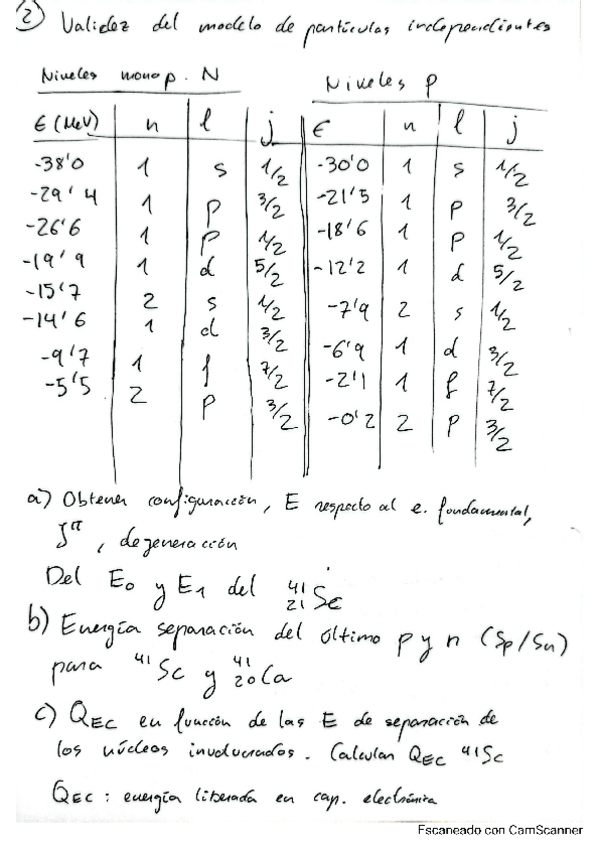 2) Validez del modelo de partículas independientes
Niveles monop. N
Niveles p
E (MeV) n l j E n l j
-38'0 1 s 1/2 -30'0 1 s 1/2
-29'4 1 p 3/2 -21'5 1 p 3/2
-26'6 1 p 1/2 -18'6 1 p 1/2
-19'9 1 d 5/2 -12'2 1 d 5/2
-15'7 2 s 1/2 -7'9 2 s 1/2
-14'6 1 d 3/2 -6'9 1 d 3/2
-9'7 1 f 7/2 -2'1 1 f 7/2
-5'5 2 p 3/2 -0'2 2 p 3/2
a) Obtener configuración, E respecto al e. fundamental,
J^π, degeneración
Del E₀ y E₁ del ⁴¹₂₁Sc
b) Energía separación del último p y n (Sp/Sn)
para ⁴¹Sc y ⁴¹₂₀Ca
c) Q_EC en función de las E de separación de
los núcleos involucrados. Calcular Q_EC ⁴¹Sc
Q_EC: energía liberada en cap. electrónica
Escaneado con CamScanner